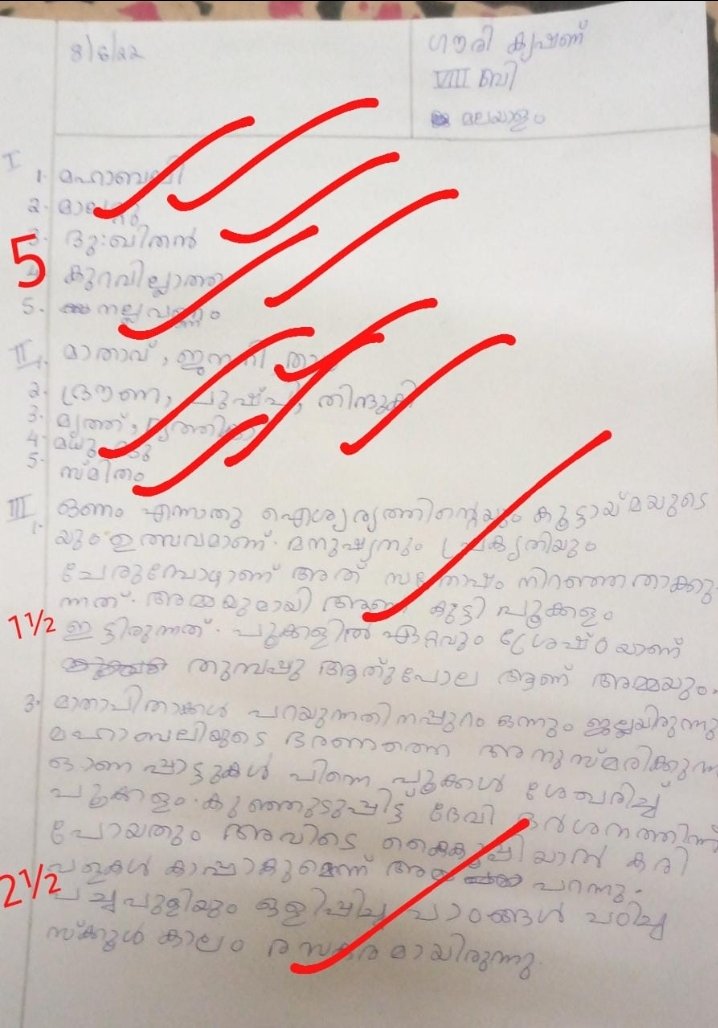 8/6/22
ഗൗരി കൃഷ്ണ
VIII ബി
മലയാളം
I
1. മഹാബലി
2.
3. ദുഃഖിതൻ
5
4. കുറവില്ലാത്ത
5. നല്ലവണ്ണം
II 1. മാതാവ്, ജനനി
2. ദ്രൗണ, പുഷ്പി, തിന്ദുകി
3. മൃത്ത്, മൃത്തിക
4.
5. സ്മിതം
III ഓണം എന്നതു ഐശ്വര്യത്തിന്റെയും കൂട്ടായ്മയുടെ
1. യും ഉത്സവമാണ്. മനുഷ്യനും പ്രകൃതിയും
ചേരുമ്പോഴാണ് അത് സന്തോഷം നിറഞ്ഞതാക്കു
ന്നത്. അമ്മയുമായി ആണ് കുട്ടി പൂക്കളം
1½
ഇട്ടിരുന്നത്. പൂക്കളിൽ ഏറ്റവും ശ്രേഷ്ഠയാണ്
തുമ്പപ്പൂ ആതുപോല ആണ് അമ്മയും.
3. മാതാപിതാക്കൾ പറയുന്നതിനപ്പുറം ഒന്നും ഇല്ലയിരുന്നു
മഹാബലിയുടെ ഭരണത്തെ അനുസ്മരിക്കുന്ന
ഓണ പ്പാട്ടുകൾ പിന്നെ പൂക്കൾ ശേഖരിച്ച്
പൂക്കളം. കുഞ്ഞുടുപ്പിട്ട് ദേവി ദർശനത്തിന്
പോയതും അവിടെ കൈകൂപ്പി യാൽ കരി
വളകൾ കാപ്പാകുമെന്ന് പറന്നു.
2½
പച്ചപുളിയും ഒളിപ്പിച്ച പാഠങ്ങൾ പഠിച്ച
സ്ക്കൂൾ കാലം രസകരമായിരുന്നു.